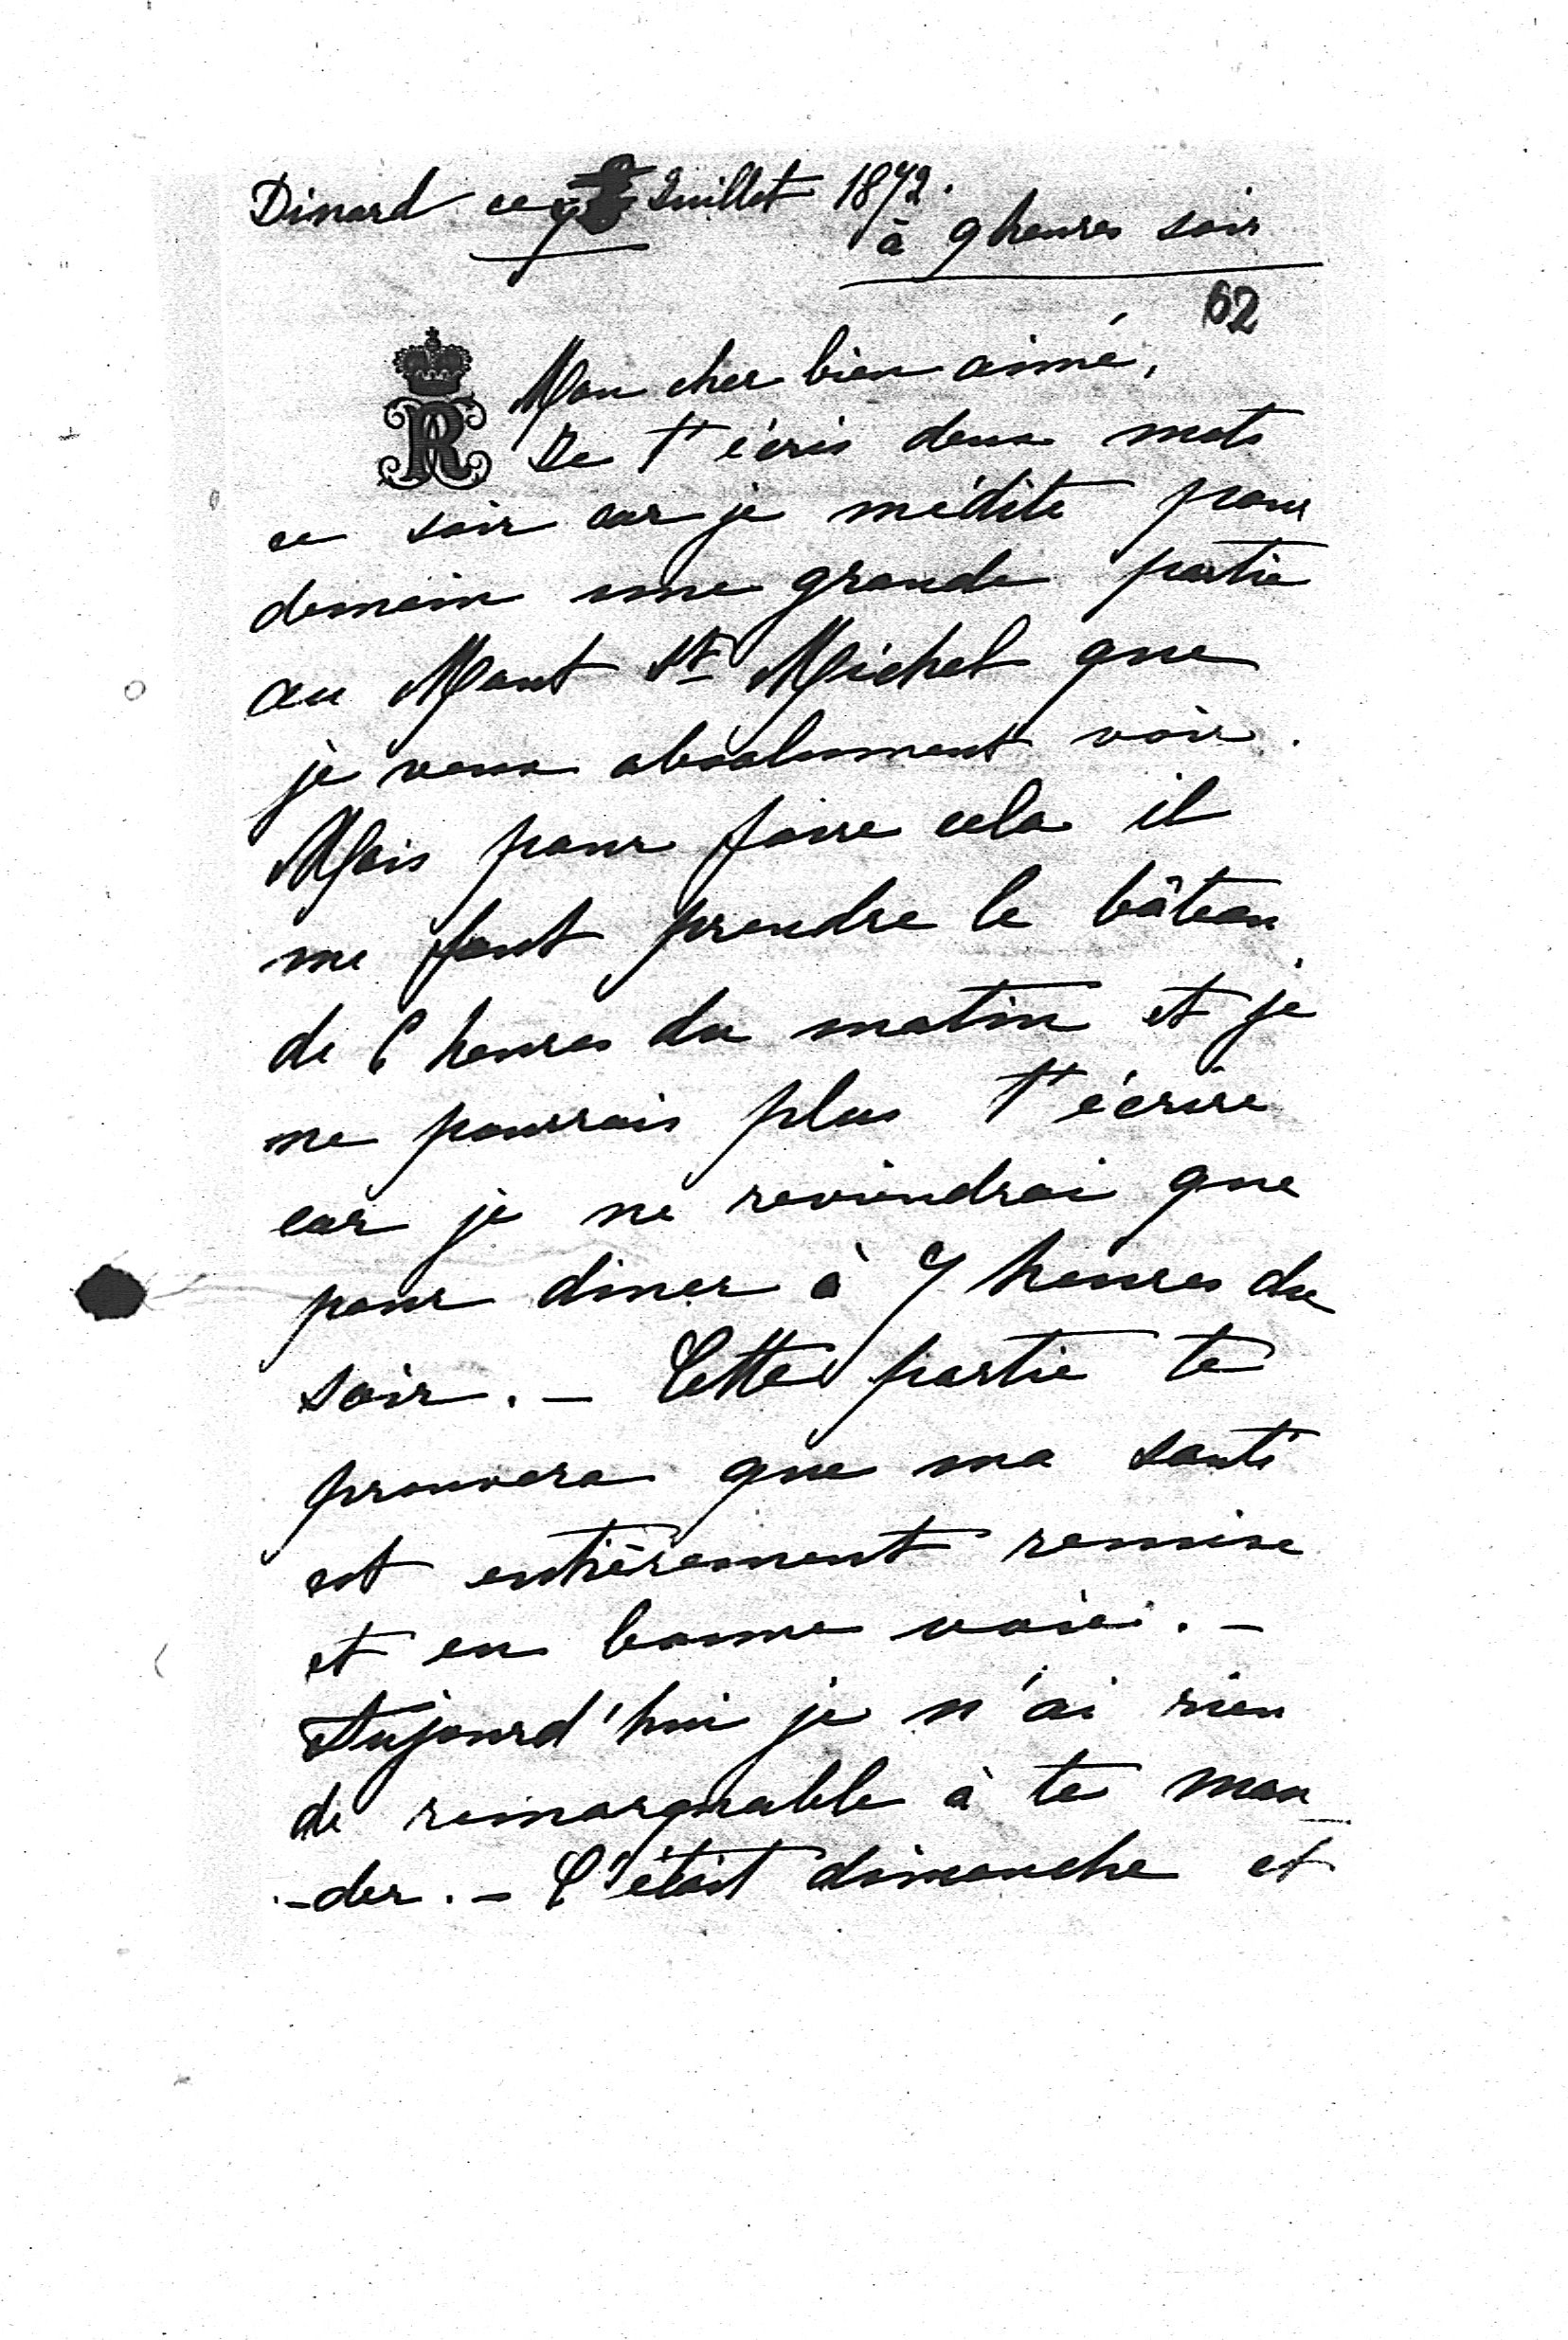 Dinard ce 7 Juillet 1872.
à 9 heures soir
62
R
Mon cher bien aimé,
Je t'écris deux mots
ce soir car je médite pour
demain une grande partie
au Mont St Michel que
je veux absolument voir.
Mais pour faire cela il
me faut prendre le bâteau
de 6 heures du matin et je
ne pourrais plus t'écrire
car je ne reviendrai que
pour diner à 7 heures du
soir. - Cette partie te
prouvera que ma santé
est entièrement remise
et en bonne voie. -
Aujourd'hui je n'ai rien
de remarquable à te man
-der. - C'était dimanche et